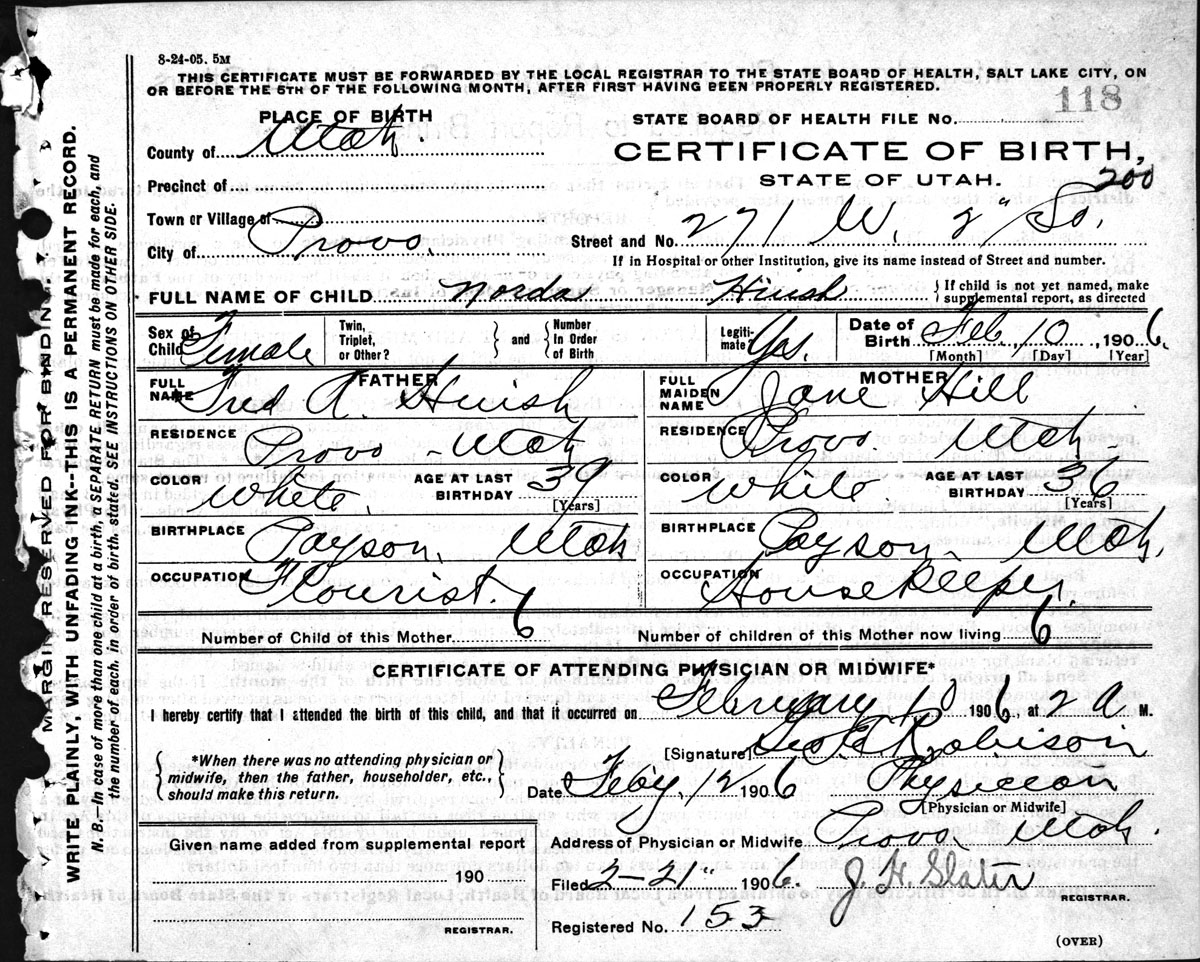 8-24-05. 5M
THIS CERTIFICATE MUST BE FORWARDED BY THE LOCAL REGISTRAR TO THE STATE BOARD OF HEALTH, SALT LAKE CITY, ON
OR BEFORE THE 5TH OF THE FOLLOWING MONTH, AFTER FIRST HAVING BEEN PROPERLY REGISTERED.
118
PLACE OF BIRTH
STATE BOARD OF HEALTH FILE No.
County of Utah.
CERTIFICATE OF BIRTH,
STATE OF UTAH.
200
Precinct of
Town or Village of
Street and No. 271 W. 2" So.
City of Provo
If in Hospital or other Institution, give its name instead of Street and number.
FULL NAME OF CHILD Norda Huish
{ If child is not yet named, make
supplemental report, as directed
Sex of Child Female
Twin, Triplet, or Other? } and { Number In Order of Birth
Legitimate Yes.
Date of Birth Feb, 10, 1906.
[Month] [Day] [Year]
FATHER
FULL NAME Fred A. Huish
MOTHER
FULL MAIDEN NAME Jane Hill
RESIDENCE Provo - Utah
RESIDENCE Provo Utah
COLOR White. AGE AT LAST BIRTHDAY 39 [Years]
COLOR White. AGE AT LAST BIRTHDAY 36 [Years]
BIRTHPLACE Payson, Utah
BIRTHPLACE Payson - Utah.
OCCUPATION Flourist.
OCCUPATION Housekeeper.
Number of Child of this Mother 6
Number of children of this Mother now living 6
CERTIFICATE OF ATTENDING PHYSICIAN OR MIDWIFE*
I hereby certify that I attended the birth of this child, and that it occurred on February 10 1906, at 2 A M.
[Signature] Robison
{ *When there was no attending physician or
midwife, then the father, householder, etc.,
should make this return. }
Date Feby. 12 1906 Physician
[Physician or Midwife]
Given name added from supplemental report
Address of Physician or Midwife Provo Utah.
190
Filed 2-21" 1906. J. H. Slater
REGISTRAR.
REGISTRAR.
Registered No. 153
(OVER)
MARGIN RESERVED FOR BINDING.
WRITE PLAINLY, WITH UNFADING INK--THIS IS A PERMANENT RECORD.
N. B.--In case of more than one child at a birth, a SEPARATE RETURN must be made for each, and
the number of each, in order of birth, stated. SEE INSTRUCTIONS ON OTHER SIDE.